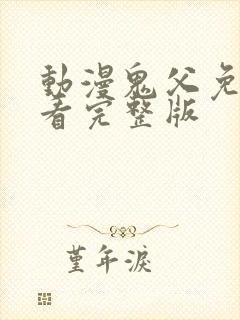 動漫鬼父免
看完整版
堇年淚